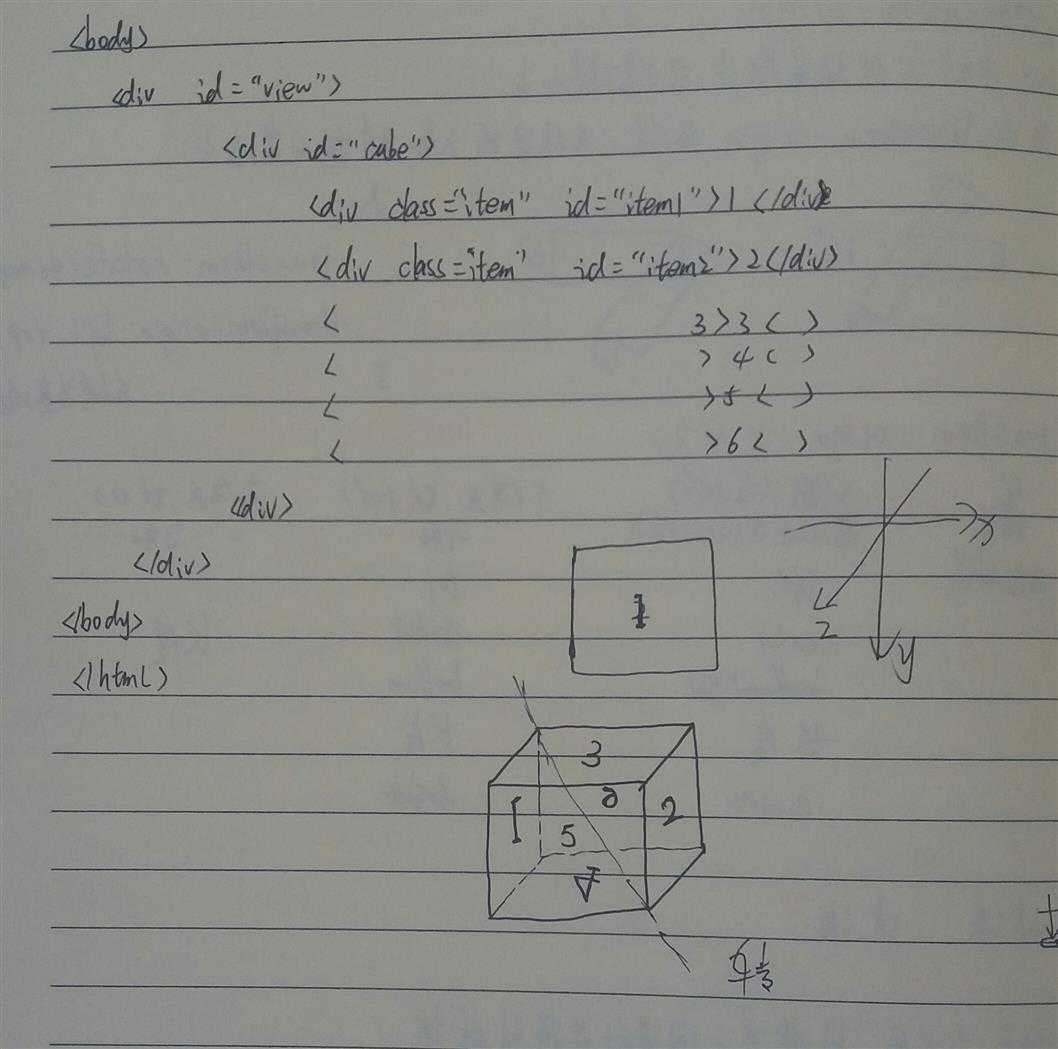 <body>
<div id="view">
<div id="cube">
<div class="item" id="item1">1</div>
<div class="item" id="item2">2</div>
< 3>3< >
< >4< >
< >5< >
< >6< >
<div>
</div>
</body>
</html>
x
z
y
1
3
1
2
5
4